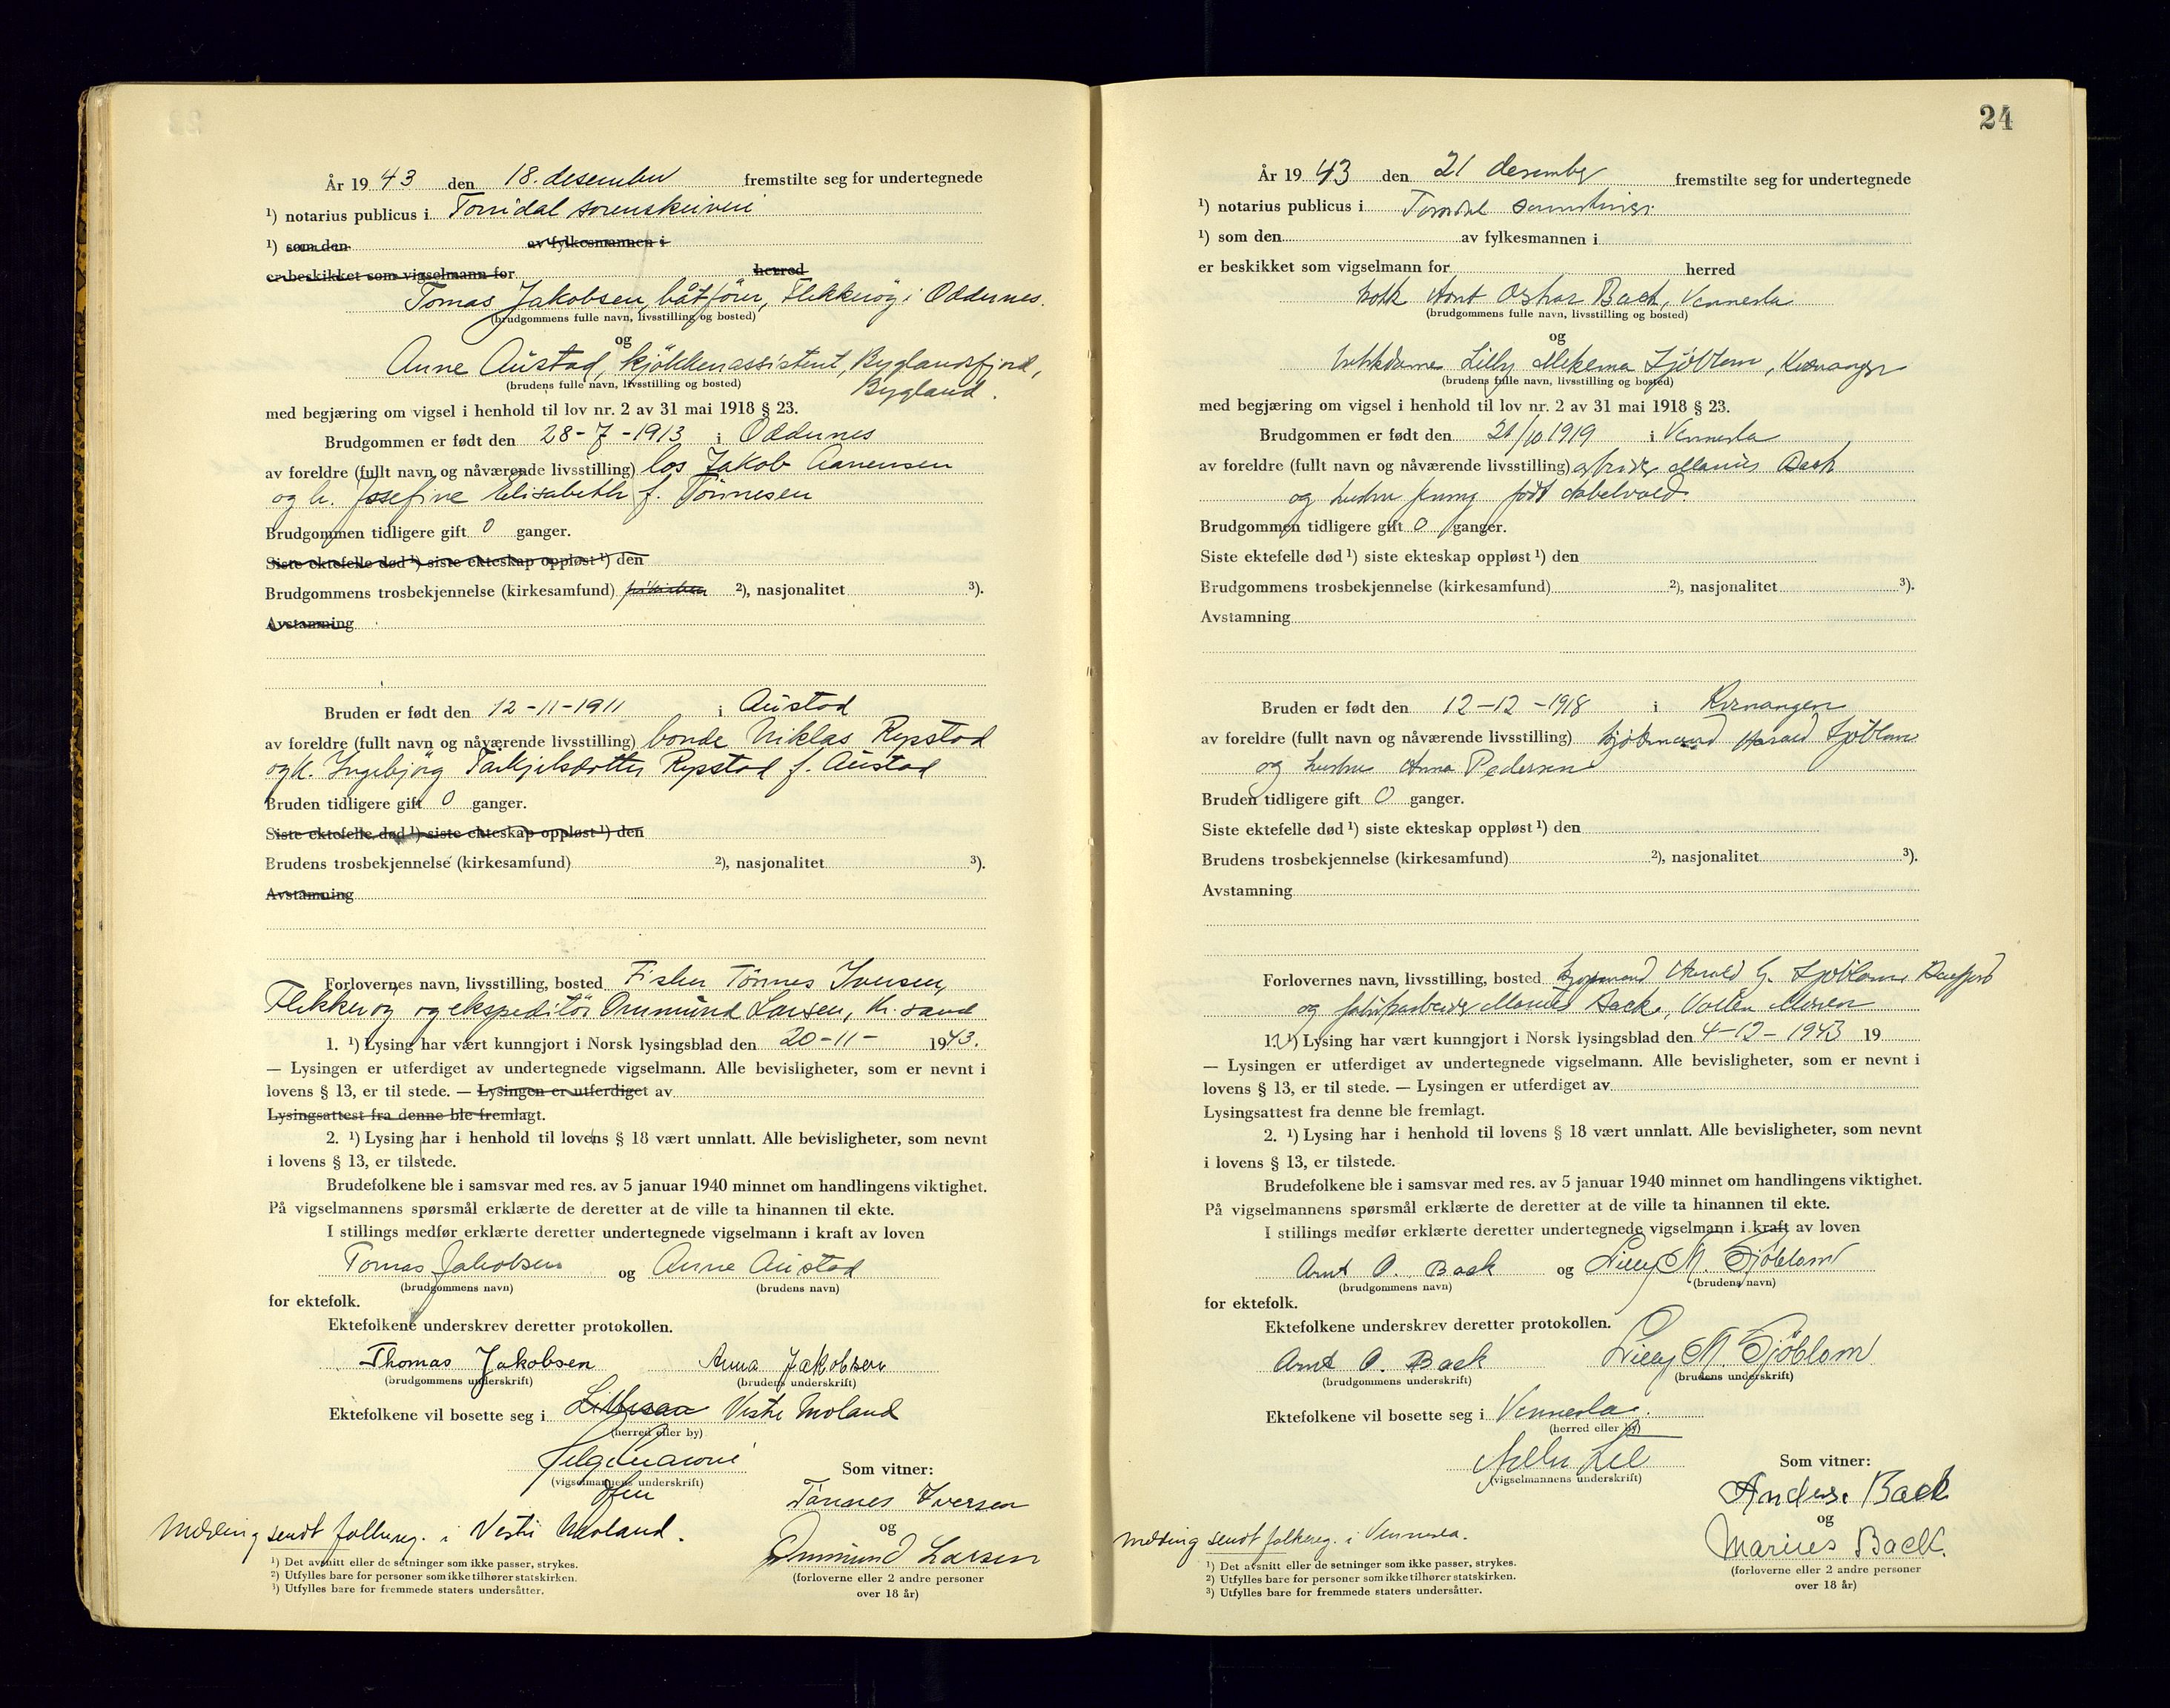 År 1943 den 18. desember fremstilte seg for undertegnede
¹) notarius publicus i Torridal sorenskriveri
¹) som den av fylkesmannen i
er beskikket som vigselmann for herred
Tomas Jakobsen, båtfører, Flekkerøy i Oddernes.
(brudgommens fulle navn, livsstilling og bosted)
og
Anne Austad, kjökkenassistent, Byglandsfjord,
(brudens fulle navn, livsstilling og bosted)
Bygland.
med begjæring om vigsel i henhold til lov nr. 2 av 31 mai 1918 § 23.
Brudgommen er født den 28-7-1913 i Oddernes
av foreldre (fullt navn og nåværende livsstilling) los Jakob Aanensen
og h. Josefine Elisabeth f. Tönnesen
Brudgommen tidligere gift 0 ganger.
Siste ektefelle død ¹) siste ekteskap oppløst ¹) den
Brudgommens trosbekjennelse (kirkesamfund) ²), nasjonalitet ³).
Avstamning
Bruden er født den 12-11-1911 i Austad
av foreldre (fullt navn og nåværende livsstilling) bonde Niklas Rysstad
og h. Ingebjörg Tarkjelsdotter Rysstad f. Austad
Bruden tidligere gift 0 ganger.
Siste ektefelle død ¹) siste ekteskap oppløst ¹) den
Brudens trosbekjennelse (kirkesamfund) ²), nasjonalitet ³).
Avstamning
Forlovernes navn, livsstilling, bosted Fisker Tönnes Iversen,
Flekkerøy og ekspeditör Ommund Larsen, Kr. sand
1. ¹) Lysing har vært kunngjort i Norsk lysingsblad den 20-11- 1943.
— Lysingen er utferdiget av undertegnede vigselmann. Alle bevisligheter, som er nevnt i
lovens § 13, er til stede. — Lysingen er utferdiget av
Lysingsattest fra denne ble fremlagt.
2. ¹) Lysing har i henhold til lovens § 18 vært unnlatt. Alle bevisligheter, som nevnt
i lovens § 13, er tilstede.
Brudefolkene ble i samsvar med res. av 5 januar 1940 minnet om handlingens viktighet.
På vigselmannens spørsmål erklærte de deretter at de ville ta hinannen til ekte.
I stillings medfør erklærte deretter undertegnede vigselmann i kraft av loven
Tomas Jakobsen og Anne Austad
(brudgommens navn) (brudens navn)
for ektefolk.
Ektefolkene underskrev deretter protokollen.
Thomas Jakobsen Anna Jakobsen
(brudgommens underskrift) (brudens underskrift)
Ektefolkene vil bosette seg i Lillesand Vestre Moland
(herred eller by)
(vigselmannens underskrift)
Som vitner:
Tönnes Iversen
og
Ommund Larsen
(forloverne eller 2 andre personer
over 18 år)
Melding sendt folkereg. i Vestre Moland.
¹) Det avsnitt eller de setninger som ikke passer, strykes.
²) Utfylles bare for personer som ikke tilhører statskirken.
³) Utfylles bare for fremmede staters undersåtter.
24
År 1943 den 21 desember fremstilte seg for undertegnede
¹) notarius publicus i Torridal sorenskriveri
¹) som den av fylkesmannen i
er beskikket som vigselmann for herred
Arnt Oskar Back, Vennesla
(brudgommens fulle navn, livsstilling og bosted)
og
Lilly Sjöblom, Kvænangen
(brudens fulle navn, livsstilling og bosted)
med begjæring om vigsel i henhold til lov nr. 2 av 31 mai 1918 § 23.
Brudgommen er født den 21/10 1919 i Vennesla
av foreldre (fullt navn og nåværende livsstilling) arbeider Marius Back
og hustru Jenny født Abelvold
Brudgommen tidligere gift 0 ganger.
Siste ektefelle død ¹) siste ekteskap oppløst ¹) den
Brudgommens trosbekjennelse (kirkesamfund) ²), nasjonalitet ³).
Avstamning
Bruden er født den 12-12-1918 i Kvænangen
av foreldre (fullt navn og nåværende livsstilling) Harald Sjöblom
og hustru Anna Pedersen
Bruden tidligere gift 0 ganger.
Siste ektefelle død ¹) siste ekteskap oppløst ¹) den
Brudens trosbekjennelse (kirkesamfund) ²), nasjonalitet ³).
Avstamning
Forlovernes navn, livsstilling, bosted Harald G. Sjöblom
og fabrikarbeider Marius Back, Mosen
1. ¹) Lysing har vært kunngjort i Norsk lysingsblad den 4-12-1943 19
— Lysingen er utferdiget av undertegnede vigselmann. Alle bevisligheter, som er nevnt i
lovens § 13, er til stede. — Lysingen er utferdiget av
Lysingsattest fra denne ble fremlagt.
2. ¹) Lysing har i henhold til lovens § 18 vært unnlatt. Alle bevisligheter, som nevnt
i lovens § 13, er tilstede.
Brudefolkene ble i samsvar med res. av 5 januar 1940 minnet om handlingens viktighet.
På vigselmannens spørsmål erklærte de deretter at de ville ta hinannen til ekte.
I stillings medfør erklærte deretter undertegnede vigselmann i kraft av loven
Arnt O. Back og Lilly M. Sjöblom
(brudgommens navn) (brudens navn)
for ektefolk.
Ektefolkene underskrev deretter protokollen.
Arnt O. Back Lilly M. Sjöblom
(brudgommens underskrift) (brudens underskrift)
Ektefolkene vil bosette seg i Vennesla.
(herred eller by)
(vigselmannens underskrift)
Som vitner:
Anders Back
og
Marius Back.
(forloverne eller 2 andre personer
over 18 år)
Melding sendt folkereg. i Vennesla.
¹) Det avsnitt eller de setninger som ikke passer, strykes.
²) Utfylles bare for personer som ikke tilhører statskirken.
³) Utfylles bare for fremmede staters undersåtter.